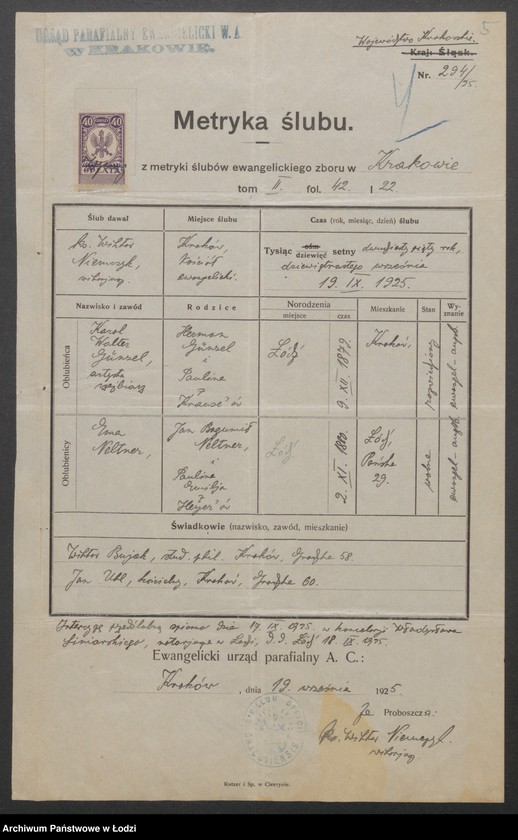 URZĄD PARAFIALNY EWANGELICKI W. A
W KRAKOWIE.
5
Województwo Krakowskie.
Kraj: Śląsk.
Nr. 294/25.
40 40
Metryka ślubu.
z metryki ślubów ewangelickiego zboru w Krakowie
tom II. fol. 42. l 22.
Ślub dawał
Miejsce ślubu
Czas (rok, miesiąc, dzień) ślubu
ks. Wiktor
Niemczyk,
wikarjusz.
Kraków,
Kościół
ewangelicki.
Tysiąc ośm dziewięć setny dwudziesty piąty rok,
dziewiętnastego września
19. IX. 1925.
Nazwisko i zawód
Rodzice
Norodzenia
miejsce
czas
Mieszkanie
Stan
Wyznanie
Oblubieńca
Karol
Walter
Günzel,
artysta
rzeźbiarz
Herman
Günzel
i
Paulina
z
Krause'ów
Łódź
9. XII. 1879.
Kraków,
rozwiedziony
ewangel.-augsb.
Oblubienicy
Ema
Neltner,
Jan Bogumił
Neltner,
i
Paulina
Emilja
z
Heyer'ów
Łódź
2. XI.
Łódź,
Pańska
29.
wolna
ewangel.-augsb.
Świadkowie (nazwisko, zawód, mieszkanie)
Wiktor Bujak, stud. phil. Kraków, Grodzka 58.
Jan Uhl, kościelny, Kraków, Grodzka 60.
Intercyzę przedślubną spisano dnia 17. IX. 1925. w kancelarji Władysława
notarjusza w Łodzi, D. D. Łódź 18. IX. 1925.
Ewangelicki urząd parafialny A. C.:
Kraków, dnia 19. września 1925.
Za Proboszcza:
ks. Wiktor Niemczyk.
wikarjusz
Kotzer i Sp. w Cieszynie.
Archiwum Państwowe w Łodzi